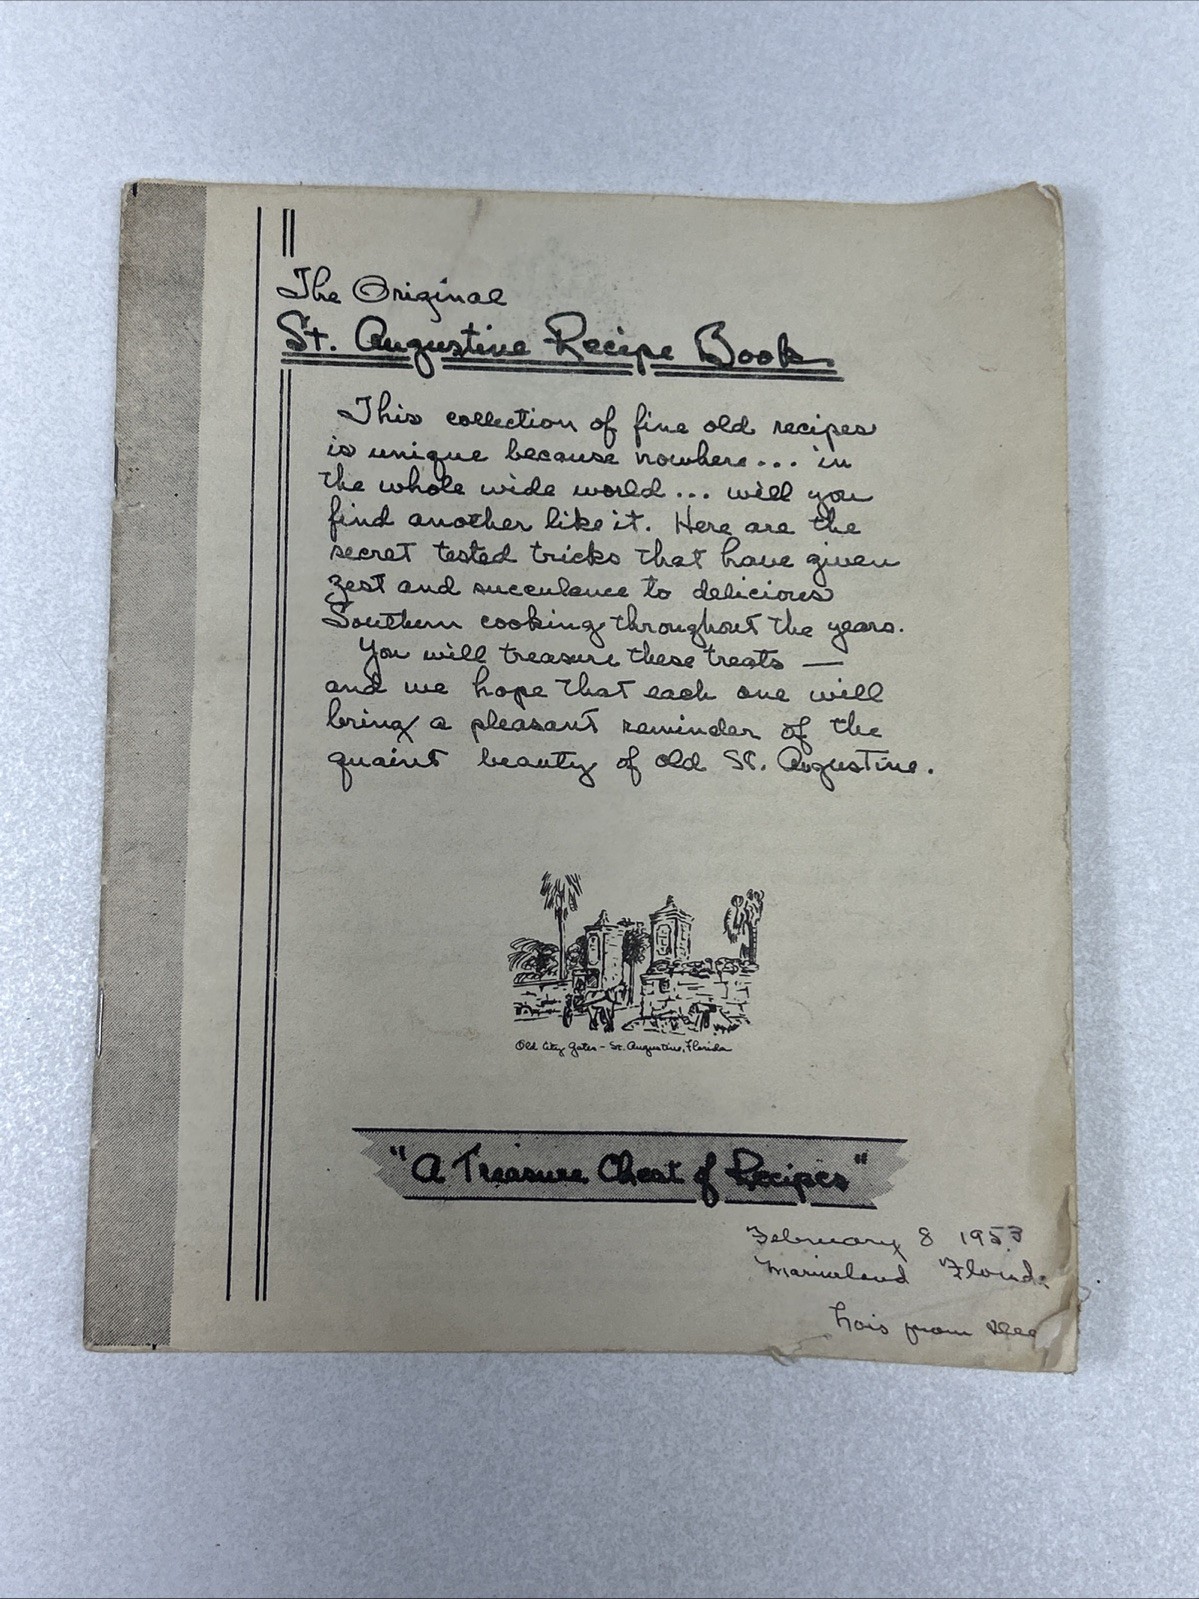 The Original
St. Augustine Recipe Book
This collection of fine old recipes
is unique because nowhere... in
the whole wide world... will you
find another like it. Here are the
secret tested tricks that have given
zest and succulance to delicious
Southern cooking throughout the years.
You will treasure these treats —
and we hope that each one will
bring a pleasant reminder of the
quaint beauty of old St. Augustine.
Old City Gates - St. Augustine, Florida
"A Treasure Chest of Recipes"
February 8 1953
Marineland Florida
Lois from